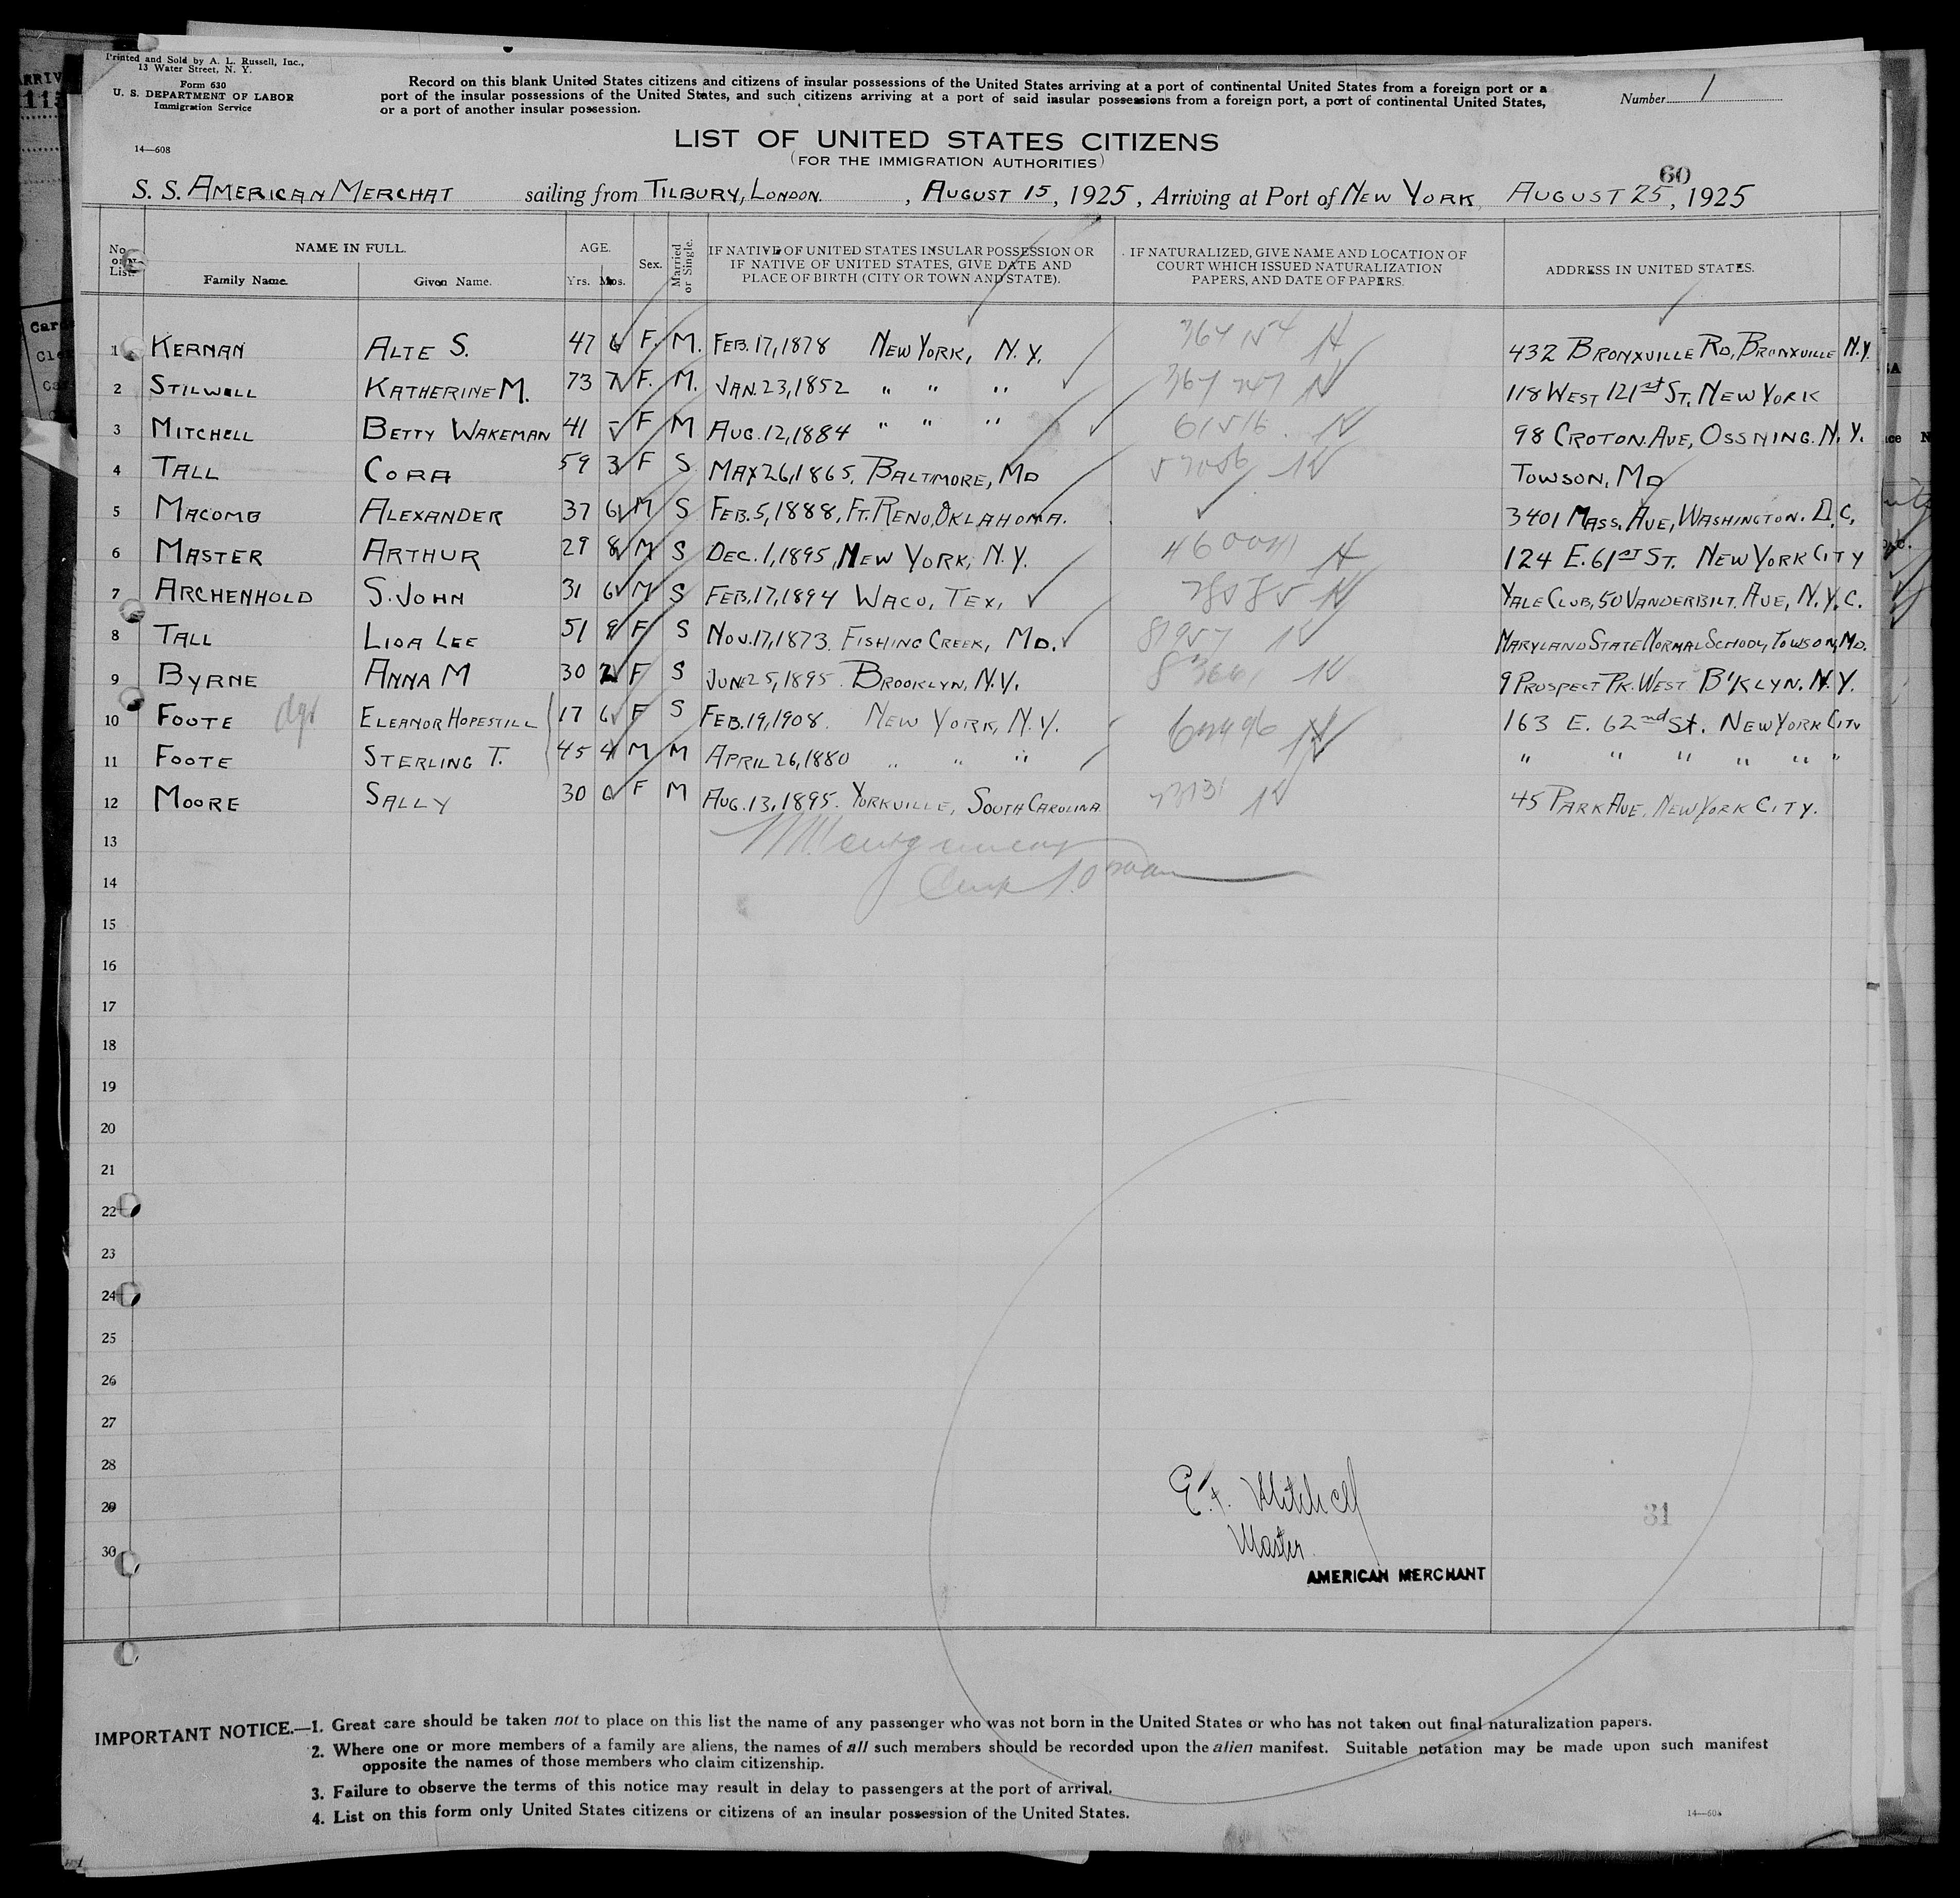 Printed and Sold by A. L. Russell, Inc.,
13 Water Street, N. Y.
Form 630
U. S. DEPARTMENT OF LABOR
Immigration Service
14—608
Record on this blank United States citizens and citizens of insular possessions of the United States arriving at a port of continental United States from a foreign port or a
port of the insular possessions of the United States, and such citizens arriving at a port of said insular possessions from a foreign port, a port of continental United States,
or a port of another insular possession.
Number 1
LIST OF UNITED STATES CITIZENS
(FOR THE IMMIGRATION AUTHORITIES)
60
S. S. AMERICAN MERCHAT sailing from TILBURY, LONDON. , AUGUST 15, 1925, Arriving at Port of NEW YORK, AUGUST 25, 1925
No. on List. NAME IN FULL. Family Name. Given Name. AGE. Yrs. Mos. Sex. Married or Single. IF NATIVE OF UNITED STATES INSULAR POSSESSION OR IF NATIVE OF UNITED STATES, GIVE DATE AND PLACE OF BIRTH (CITY OR TOWN AND STATE). IF NATURALIZED, GIVE NAME AND LOCATION OF COURT WHICH ISSUED NATURALIZATION PAPERS, AND DATE OF PAPERS. ADDRESS IN UNITED STATES.
1 KERNAN ALTE S. 47 6 F. M. FEB. 17, 1878 NEW YORK, N. Y. 432 BRONXVILLE RD, BRONXVILLE N.Y.
2 STILWELL KATHERINE M. 73 7 F. M. JAN. 23, 1852 " " " 118 WEST 121st ST. NEW YORK
3 MITCHELL BETTY WAKEMAN 41 - F M AUG. 12, 1884 " " " 98 CROTON AVE, OSSNING. N. Y.
4 TALL CORA 59 3 F S MAY 26, 1865. BALTIMORE, MD TOWSON, MD
5 MACOMB ALEXANDER 37 6 M S FEB. 5, 1888, FT. RENO, OKLAHOMA. 3401 MASS. AVE, WASHINGTON. D. C.
6 MASTER ARTHUR 29 8 M S DEC. 1, 1895, NEW YORK, N. Y. 124 E. 61ST ST. NEW YORK CITY
7 ARCHENHOLD S. JOHN 31 6 M S FEB. 17, 1894 WACO, TEX, YALE CLUB, 50 VANDERBILT. AVE, N. Y. C.
8 TALL LIDA LEE 51 9 F S NOV. 17, 1873. FISHING CREEK, MD. MARYLAND STATE NORMAL SCHOOL, TOWSON, MD.
9 BYRNE ANNA M 30 2 F S JUNE 25, 1895. BROOKLYN, N.Y. 9 PROSPECT PK. WEST B'KLYN. N. Y.
10 FOOTE ELEANOR HOPESTILL 17 6 F S FEB. 19, 1908. NEW YORK, N. Y. 163 E. 62nd St. NEW YORK CITY
11 FOOTE STERLING T. 45 4 M M APRIL 26, 1880 " " " " " " " " "
12 MOORE SALLY 30 0 F M AUG. 13, 1895. YORKVILLE, SOUTH CAROLINA 45 PARK AVE, NEW YORK CITY.
13
14
15
16
17
18
19
20
21
22
23
24
25
26
27
28
29
30
E. F. Mitchell
Master
AMERICAN MERCHANT
31
IMPORTANT NOTICE.—1. Great care should be taken not to place on this list the name of any passenger who was not born in the United States or who has not taken out final naturalization papers.
2. Where one or more members of a family are aliens, the names of all such members should be recorded upon the alien manifest. Suitable notation may be made upon such manifest
opposite the names of those members who claim citizenship.
3. Failure to observe the terms of this notice may result in delay to passengers at the port of arrival.
4. List on this form only United States citizens or citizens of an insular possession of the United States.
14—608